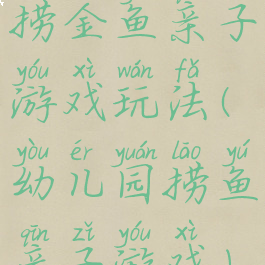 捞金鱼亲子
yóu xì wán fǎ
游戏玩法(
yòu ér yuán lāo yú
幼儿园捞鱼
qīn zǐ yóu xì
亲子游戏)